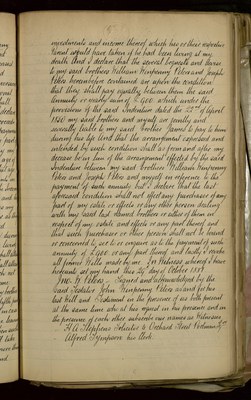 investments and income thereof which her or their parents
Parent would have taken if he had been living at my
death And I declare that the several bequests and leases
to my said brothers William Winpenny Peken and Joseph
Peken hereinbefore contained are upon the condition
that they shall pay equally between them the said
annuity or yearly sum of £400 which under the
provisions of the said Indenture dated the 22nd of April
1880 my said brothers and myself are jointly and
severally liable to my said brother to pay to him
during his life And that the arrangement expressed and
intended by such condition shall as from and after my
decease be in lieu of the arrangement effected by the said
Indenture between my said brothers William Winpenny
Peken and Joseph Peken and myself in reference to the
payment of such annuity but I declare that the last
aforesaid condition shall not affect any purchaser of any
part of my estate or effects or any other person dealing
with my said last named brothers or either of them in
respect of my estate and effects or any part thereof and
that such purchaser or other person shall not be bound
or concerned to see to or enquire as to the payment of such
annuity of £400 or any part thereof and lastly I revoke
all former Wills made by me In Witness whereof I have
hereunto set my hand this day of October 1888
Jno. W. Peken Signed and acknowledged by the
said Testator John Winpenny Peken as and for his
last Will and Testament in the presence of us both present
at the same time who at his request in his presence and in
the presence of each other subscribe our names as Witnesses
Stephens Solicitor 6 Orchard Street
Alfred Sympson his Clerk